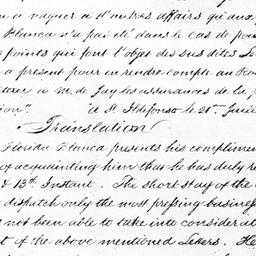 n a vaquer à d'autres affairs qu'aux p
Blanca n'a pai eté dans le cas de pou
s points qui font l'objet des sus dites Le
a present pour en rendre compte au Roi
terer a M. de Jay les assurances de la p
tion". a St Ildefonso le 21e Juil
Translation
Florida Blanca presents his complimen
of acquainting him that he has duly re
& 13th Instant. The short stay of the
dispatch only the most pressing business
not been able to take into considerat
t of the above mentioned Letters. He